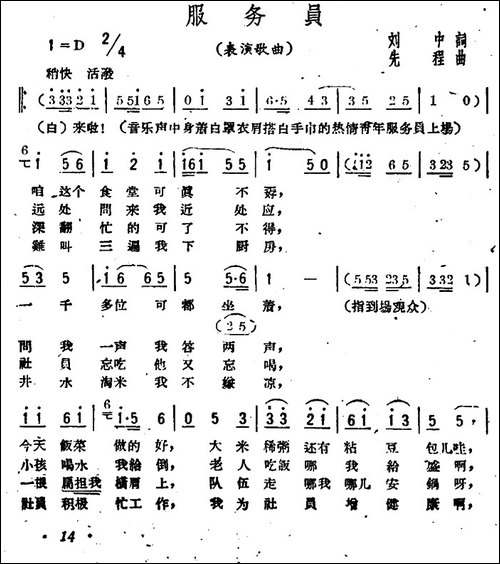 服务員
1=D 2/4
(表演歌曲)
刘中詞
先程曲
稍快 活潑
(3 3 3 2 1 | 5 5 1 6 5 | 0 1 3 1 | 6·5 4 3 | 3 5 2 5 | 1 0)
(白)来啦! (音乐声中身着白罩衣肩搭白手巾的热情青年服务員上場)
1 5 6 | 1 2 1 | 1 6 1 5 5 | 1 5 0 | (1 1 2 6 5 | 3 2 3 5)
咱这个食堂可真不孬,
远处問来我近处应,
深翻忙的可了不得,
雞叫三遍我下厨房,
5 3 5 | 1 6 6 5 | 5 5·6 | 1 — | (5 5 3 2 3 5 | 3 3 2 1)
一千多位可都坐着, (指到場观众)
(2 5)
問我一声我答两声,
社員忘吃他又忘喝,
井水淘米我不嫌凉,
1 1 6 1 | 1·5 6 | 0 5 3 | 3 3 2 1 | 6 1 1 3 | 5 5
今天飯菜做的好, 大米稀粥还有粘豆包儿哇,
小孩喝水我給倒, 老人吃飯哪我給盛啊,
一根扁担我横肩上, 队伍走哪我哪儿安鍋呀,
社員积极忙工作, 我为社員增健康啊,
· 14 ·